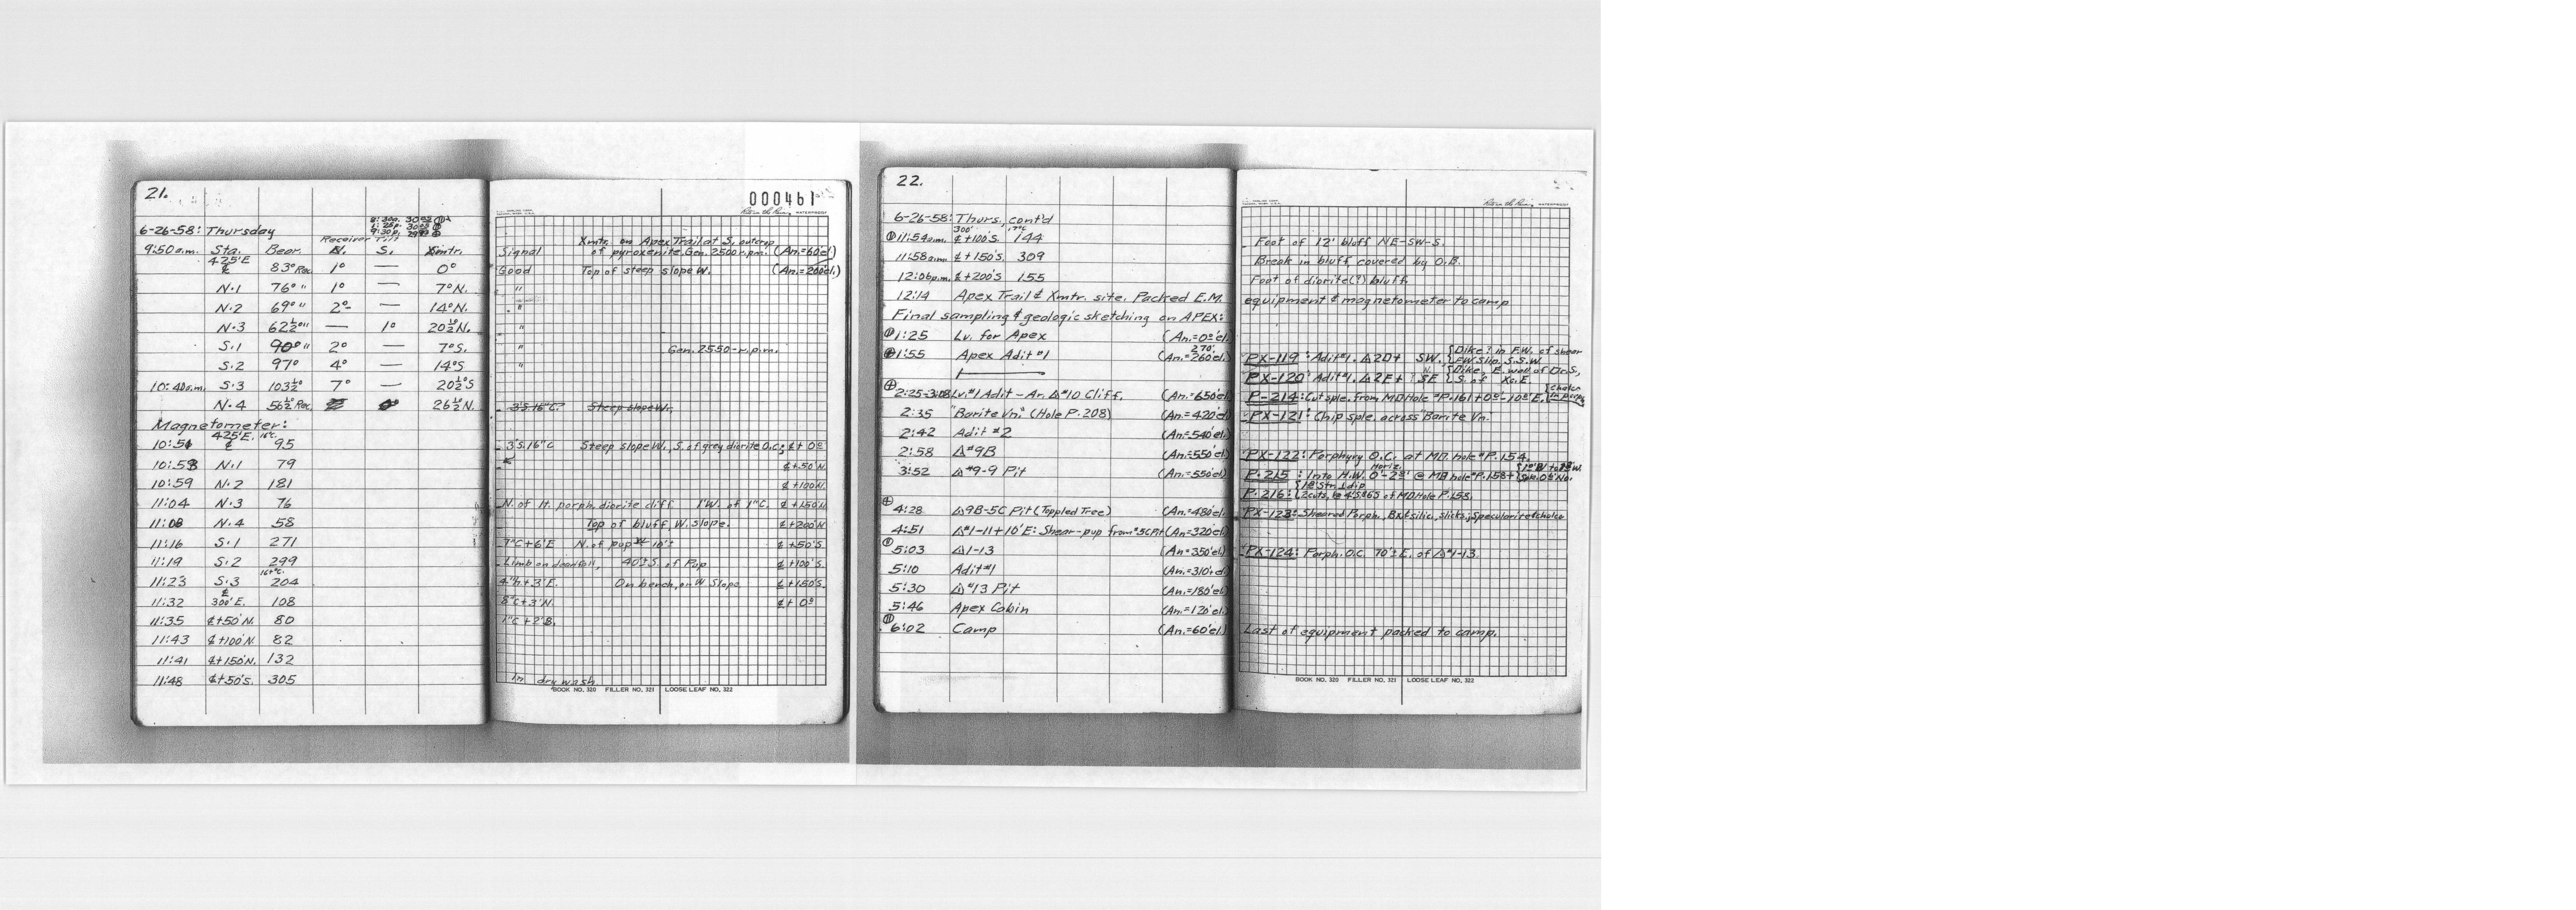 21.
000461
Rite in the Rain WATERPROOF
8:30a. 30
1:20p.
9:30p.
6-26-58: Thursday
Receiver Tilt
9:50a.m. Sta. Bear. N. S. Xmtr.
425'E
℄ 83° Rec. 1° — 0°
N·1 76° " 1° — 7°N.
N·2 69° " 2° — 14°N.
N·3 62½° " — 1° 20½°N.
S·1 90° " 2° — 7°S.
S·2 97° 4° — 14°S
10:40a.m. S·3 103½° 7° — 20½°S
N·4 56½° Rec. 26½°N.
Magnetometer:
425'E. 16°C.
10:51 ℄ 95
10:58 N·1 79
10:59 N·2 181
11:04 N·3 76
11:08 N·4 58
11:16 S·1 271
11:19 S·2 299
16+°C.
11:23 S·3 204
℄
11:32 300'E. 108
11:35 ℄+50'N. 80
11:43 ℄+100'N. 82
11:41 ℄+150'N. 132
11:48 ℄+50'S. 305
Xmtr. on Apex Trail at S. outcrop
Signal of pyroxenite. Gen. 2500 r.p.m. (An.=60'el.)
Good Top of steep slope W. (An.=200'el.)
"
"
"
" Gen. 2550-r.p.m.
"
3'S.16"C? Steep slope W.
3'S.16"C Steep slope W., S. of grey diorite O.C.; ℄+0°
℄+50'N.
℄+100'N.
N. of lt. porph. diorite cliff. 1'W. of 1"C. ℄+150'N
Top of bluff, W. slope. ℄+200'N
7"C+6'E N. of pup 10'± ℄+50'S.
Limb on deadfall, 40'±S. of Pup ℄+100'S.
4"h+3'E. On bench, on W Slope ℄+150'S.
8"C+3'N. ℄+0°
1"C+2'B.
In dry wash.
BOOK NO. 320 FILLER NO. 321 LOOSE LEAF NO. 322
22.
Rite in the Rain WATERPROOF
6-26-58: Thurs., cont'd
300' 17°C
11:54a.m. ℄+100'S. 144
11:58a.m. ℄+150'S. 309
12:06p.m. ℄+200'S 155
12:14 Apex Trail & Xmtr. site. Packed E.M.
Final sampling & geologic sketching on APEX:
1:25 Lv. for Apex (An.=0°el.)
270'
1:55 Apex Adit #1 (An.=260'el.)
2:25-3:08 Lv. #1 Adit - Ar. △#10 Cliff. (An.=650'el.)
2:35 "Barite Vn." (Hole P.208) (An.=420'el.)
2:42 Adit #2 (An.=540'el.)
2:58 △#9B (An.=550'el.)
3:52 △#9-9 Pit (An.=550'el.)
4:28 △9B-5C Pit (Toppled Tree) (An.=480'el.)
4:51 △#1-11+10'E: Shear-pup from #5C Pit (An.=320'el.)
5:03 △1-13 (An=350'el.)
5:10 Adit #1 (An.=310±el.)
5:30 △#13 Pit (An.=180'el.)
5:46 Apex Cabin (An.=120'el.)
6:02 Camp (An.=60'el.)
Foot of 12' bluff NE-SW-S.
Break in bluff, covered by O.B.
Foot of diorite(?) bluff.
equipment & magnetometer to camp
PX-119: Adit #1. △2D+ SW. {Dike? in F.W. of shear
FW slip, S.S.W.
PX-120: Adit #1. △2E+ SE {Dike, E. wall of Dr. S,
S. of Xc. E.
P-214: Cut sple. from MD Hole #P.161+0°-10°E.
PX-121: Chip sple. across "Barite Vn."
PX-122: Porphyry O.C. at MD. hole #P.154.
Horiz.
P.215: Into H.W. 0'-2° @ MD hole #P.158+
Str. ⊥ dip
P.216: {2 cuts, of MD Hole P.158.
PX-123: Sheared Porph., Bx & silic., slicks, Specularite & chalco
PX-124: Porph. O.C. 70'±E. of △#1-13.
Last of equipment packed to camp.
BOOK NO. 320 FILLER NO. 321 LOOSE LEAF NO. 322